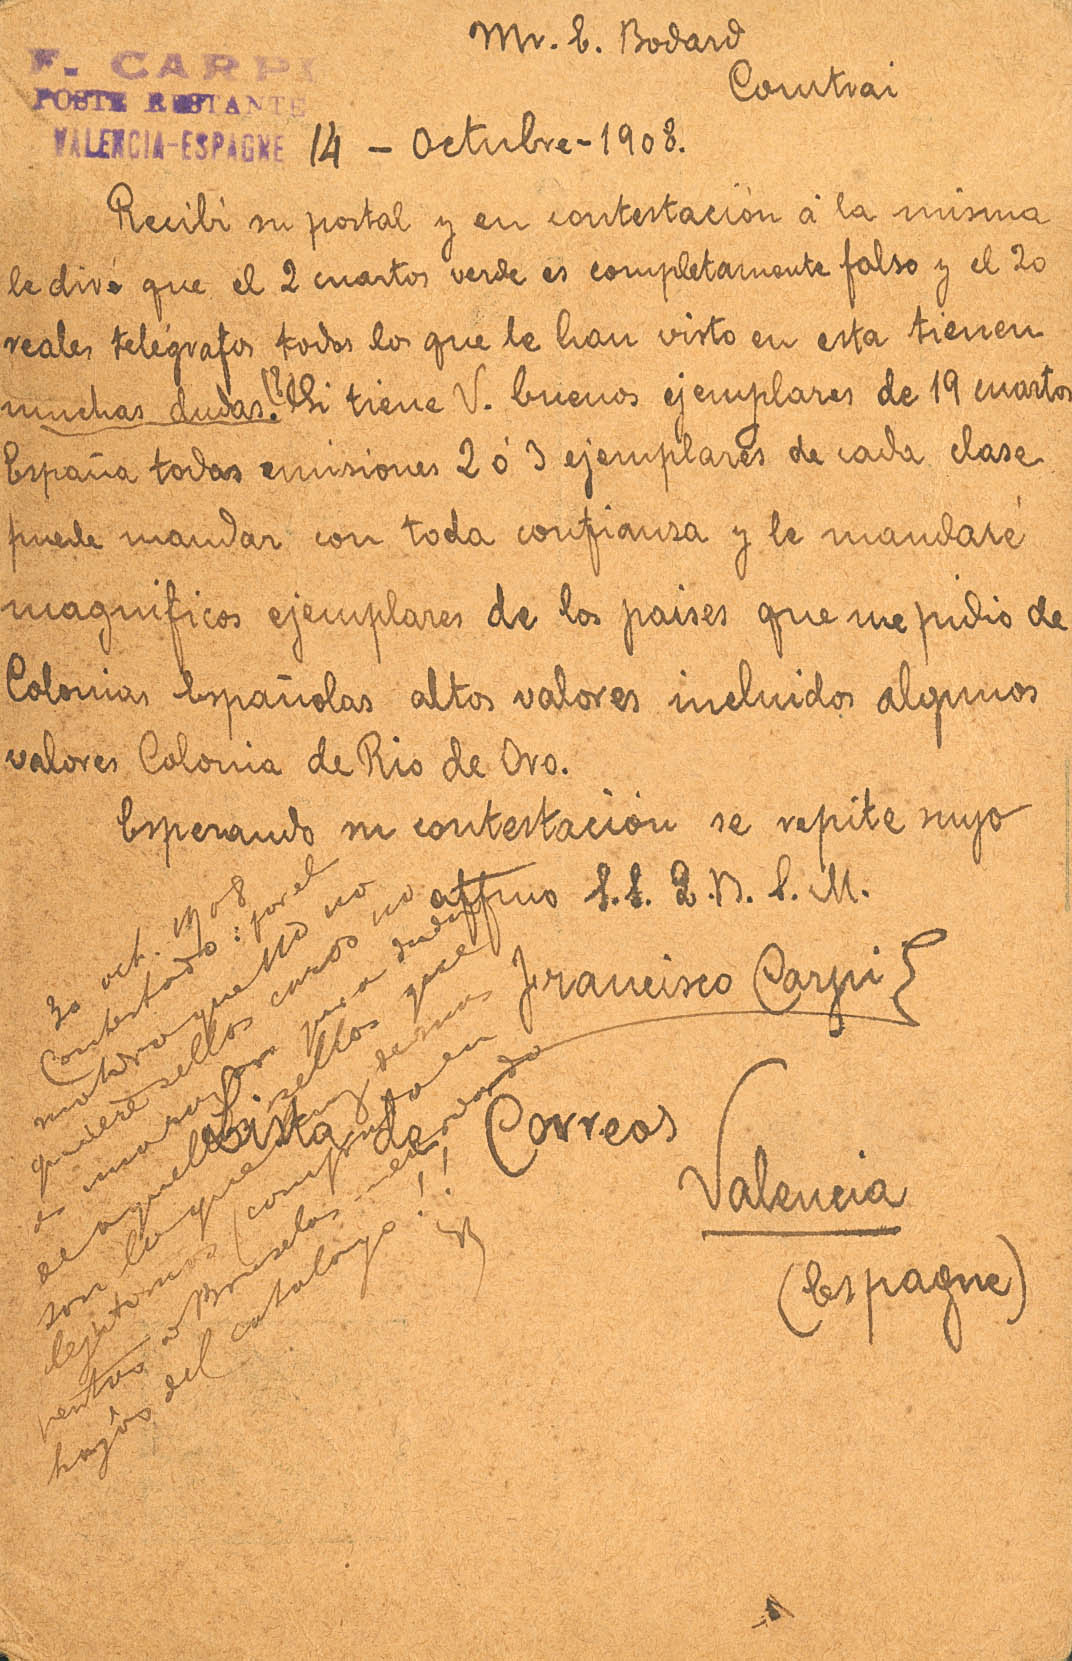 Mr. E. Bodard
Courtrai
F. CARPI
POSTE RESTANTE
VALENCIA-ESPAGNE
14 - Octubre - 1908.
Recibí su postal y en contestación á la misma
le diré que el 2 cuartos verde es completamente falso y el 20
reales telégrafos todos los que le han visto en esta tienen
muchas dudas.(?) Si tiene V. buenos ejemplares de 19 cuartos
España todas emisiones 2 ó 3 ejemplares de cada clase
puede mandar con toda confianza y le mandaré
magnificos ejemplares de los paises que me pidio de
Colonias Españolas altos valores incluidos algunos
valores Colonia de Rio de Oro.
Esperando su contestación se repite suyo
affmo S.S. Q.B.S.M.
Francisco Carpi
Lista de Correos
Valencia
(Espagne)
20 oct. 1908
Contestado: por el
motivo que Vd no
quiere sellos caros no
para dudar
de aquellos sellos que
son lo que
legitimos (comprado en
Bruselas
hojas del catalogo!!